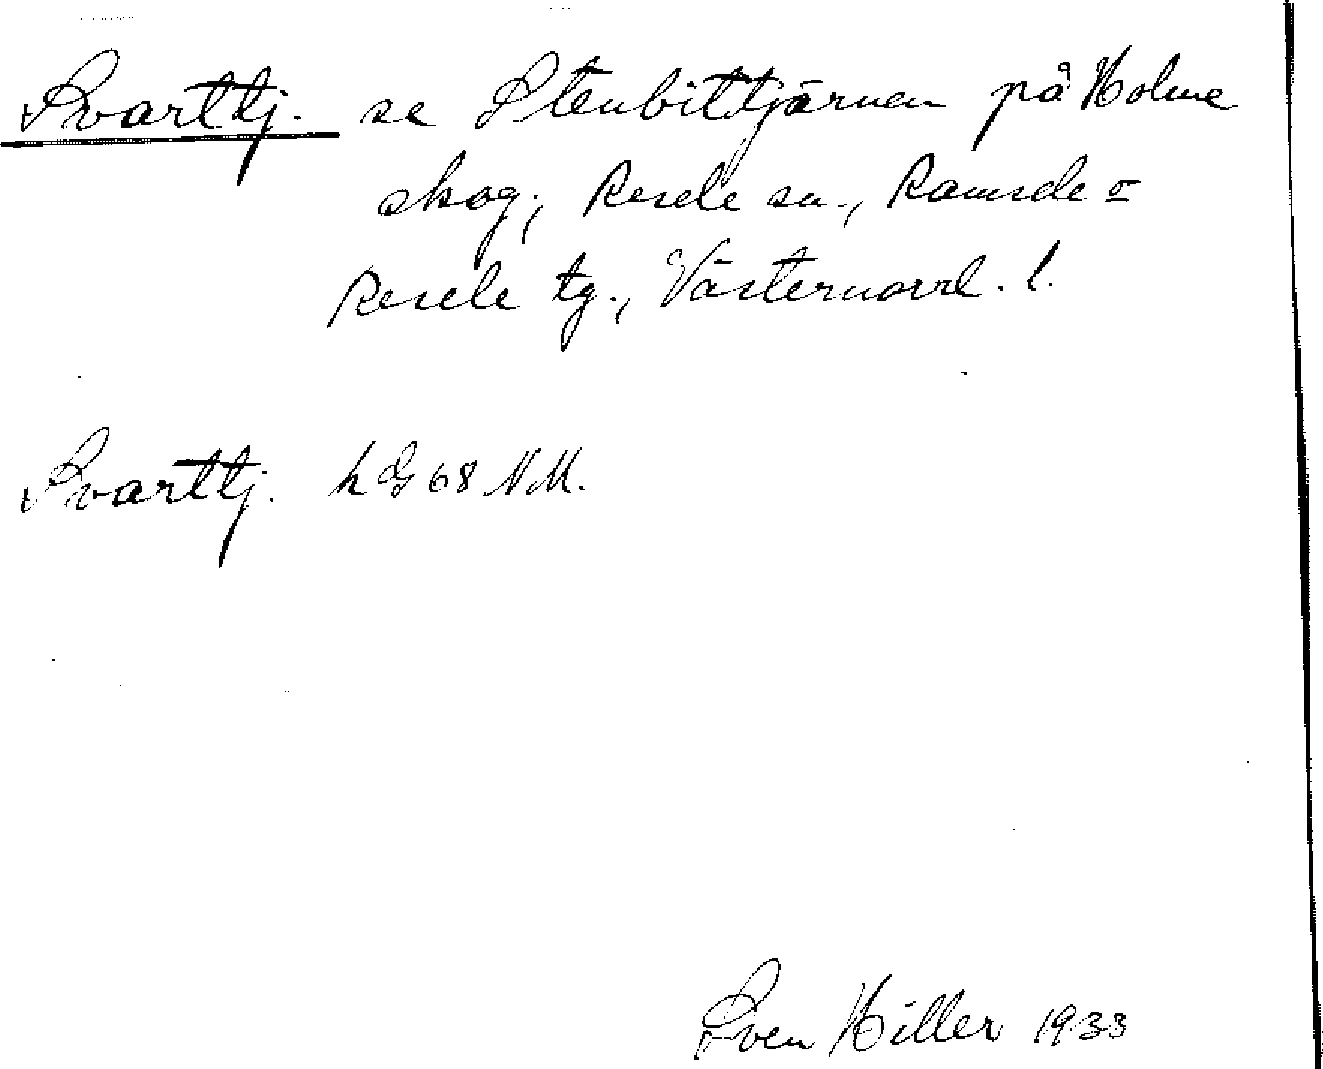 Svarttj. se Stenbittjärnen på Holme
skog; Resele sn., Ramsele o
Resele tg., Västernorrl. l.
Svarttj. h G 68 NM.
Sven Hiller 1933